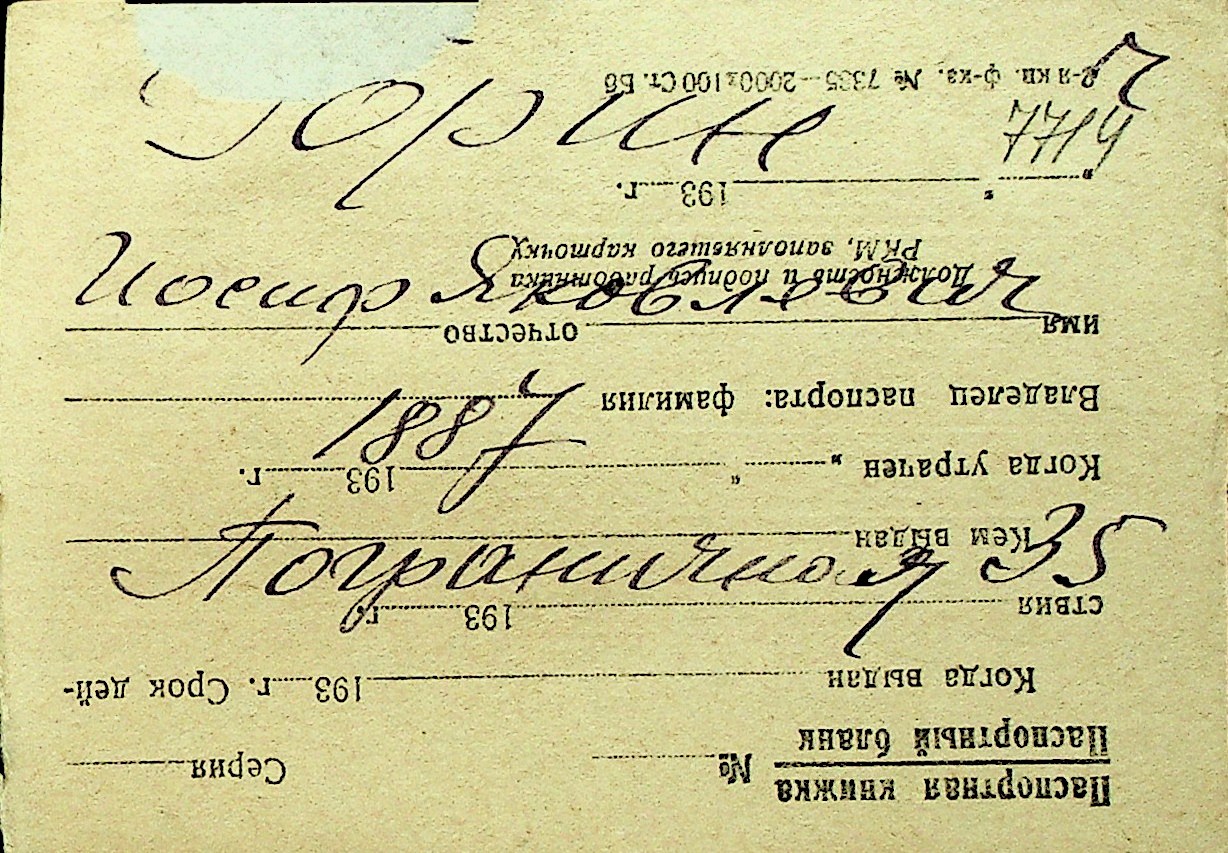 Юрин
7719
Иосиф Яковлевич
1887
Пограничная 35
Паспортная книжка
Паспортный бланк
№ Серия
Когда выдан 193 г. Срок дей-
ствия 193 г.
Кем выдан
Когда утрачен „ “ 193 г.
Владелец паспорта: фамилия
имя отчество
Должность и подпись работника
РКМ, заполнявшего карточку
„ “ 193 г.
2-я кв. ф-ка. № 7335—2000х100 Ст. Бб